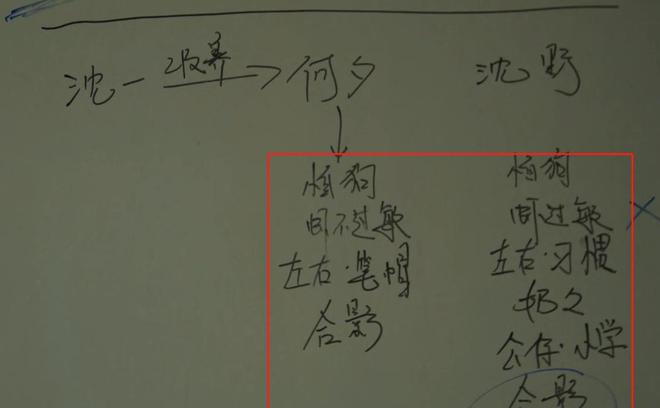 沈一 收养 何夕 沈野
怕狗 怕狗
不过敏 过敏
左右·笔帽 左右·习惯
合影
公仔·小学
合影